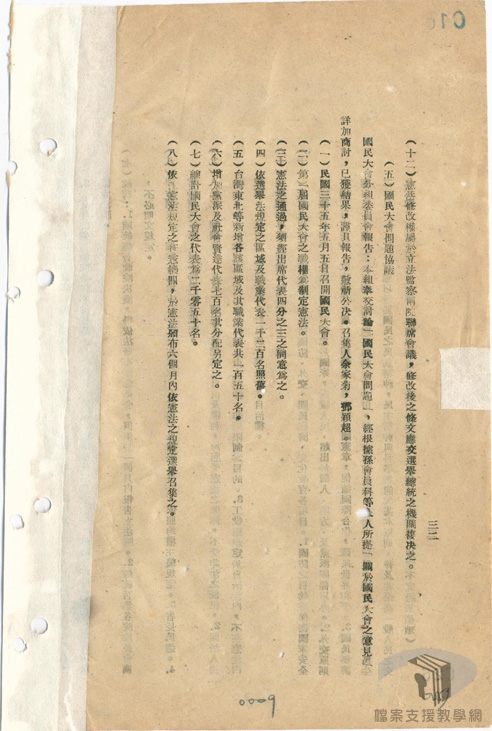 三二
(十二)憲法修改權屬於立法監察兩院聯席會議,修改後之條文應交選舉總統之機關複決之。
(五)國民大會問題協議
國民大會分組委員會報告:本組奉交討論「國民大會問題」,經根據孫會員科等八人所提「關於國民大會之意見」
詳加商討,已獲結果,謹具報告,敬祈公決。召集人余家菊,鄧穎超。
(一)民國三十五年五月五日召開國民大會。
(二)第一屆國民大會之職權為制定憲法。
(三)憲法之通過,須經出席代表四分之三之同意為之。
(四)依選舉法規定之區域及職業代表一千二百名照舊。
(五)台灣東北等新增各該區域及其職業代表共一百五十名。
(六)增加黨派及社會賢達代表七百名其分配另定之。
(七)總計國民大會之代表為二千零五十名。
(八)依憲法規定之行憲機關,於憲法頒布六個月內依憲法之規定選舉召集之。
0009
檔案支援教學網